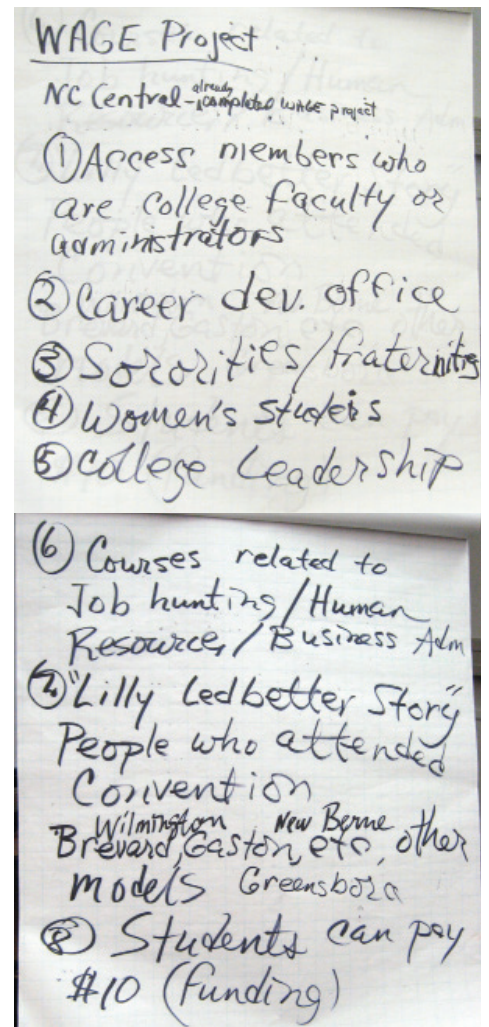 WAGE Project
NC Central - already completed WAGE project
① Access members who
are college faculty or
administrators
② Career dev. office
③ Sororities/fraternities
④ Women's Studeis
⑤ College Leadership
⑥ Courses related to
Job hunting/Human
Resources/Business Adm
⑦ "Lilly Ledbetter Story"
People who attended
Convention
Wilmington New Berne
Brevard, Gaston, etc, other
models Greensboro
⑧ Students can pay
$10 (funding)